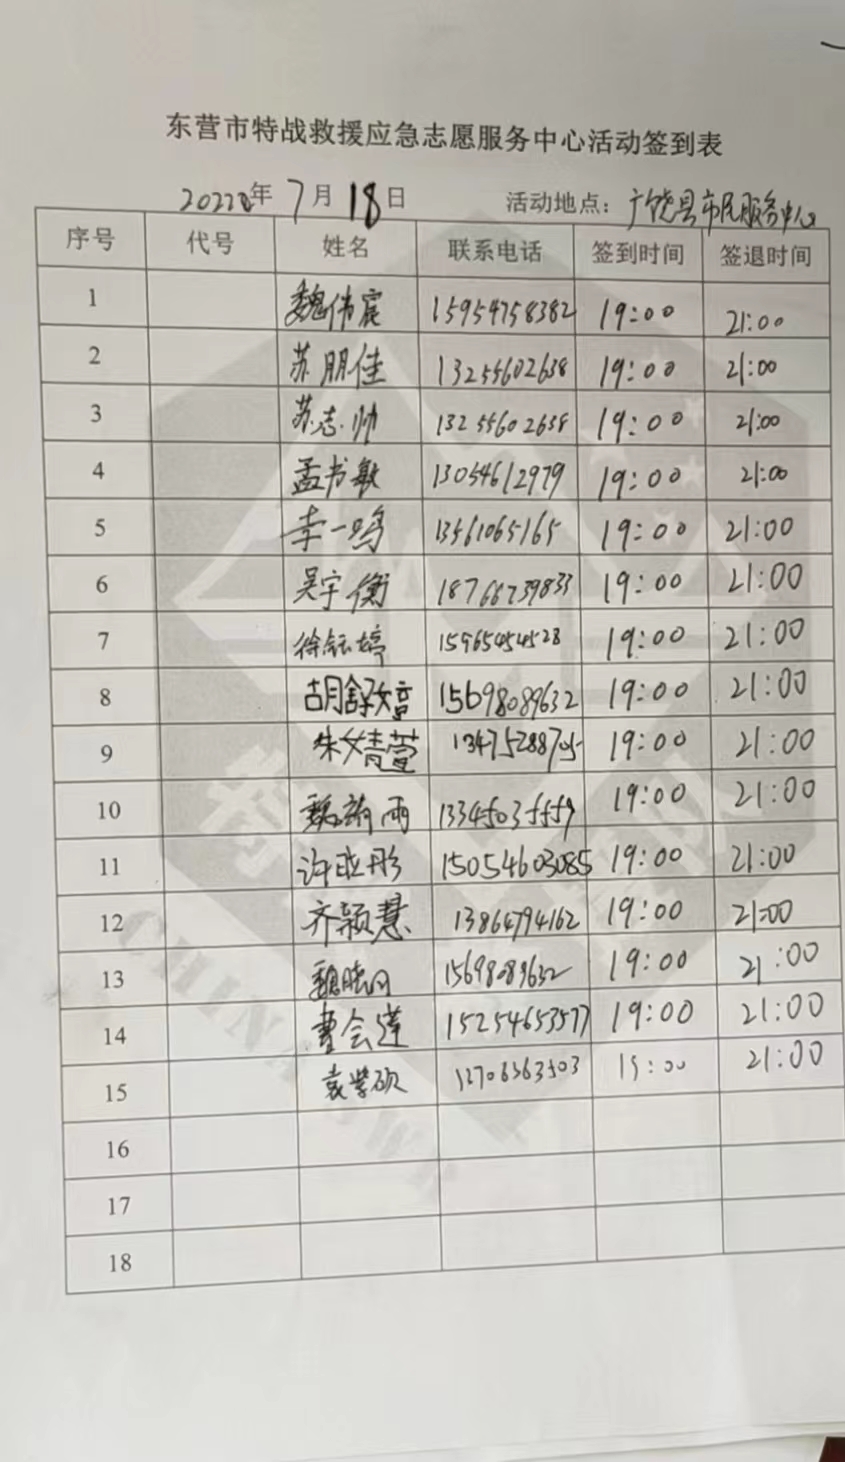 东营市特战救援应急志愿服务中心活动签到表
年 7 月 18 日 活动地点：广饶县市民服务中心
序号 代号 姓名 联系电话 签到时间 签退时间
1 魏伟宸 15954758382 19:00 21:00
2 苏朋佳 13255602638 19:00 21:00
3 苏志帅 13255602638 19:00 21:00
4 孟书敏 13054612979 19:00 21:00
5 李一鸣 13561065165 19:00 21:00
6 吴宇衡 19:00 21:00
7 徐钰婷 15965454528 19:00 21:00
8 15698089632 19:00 21:00
9 19:00 21:00
10 13345035559 19:00 21:00
11 15054603085 19:00 21:00
12 齐颖慧 13864794162 19:00 21:00
13 15698089632 19:00 21:00
14 曹会莲 15254653577 19:00 21:00
15 21:00
16
17
18
CHINA